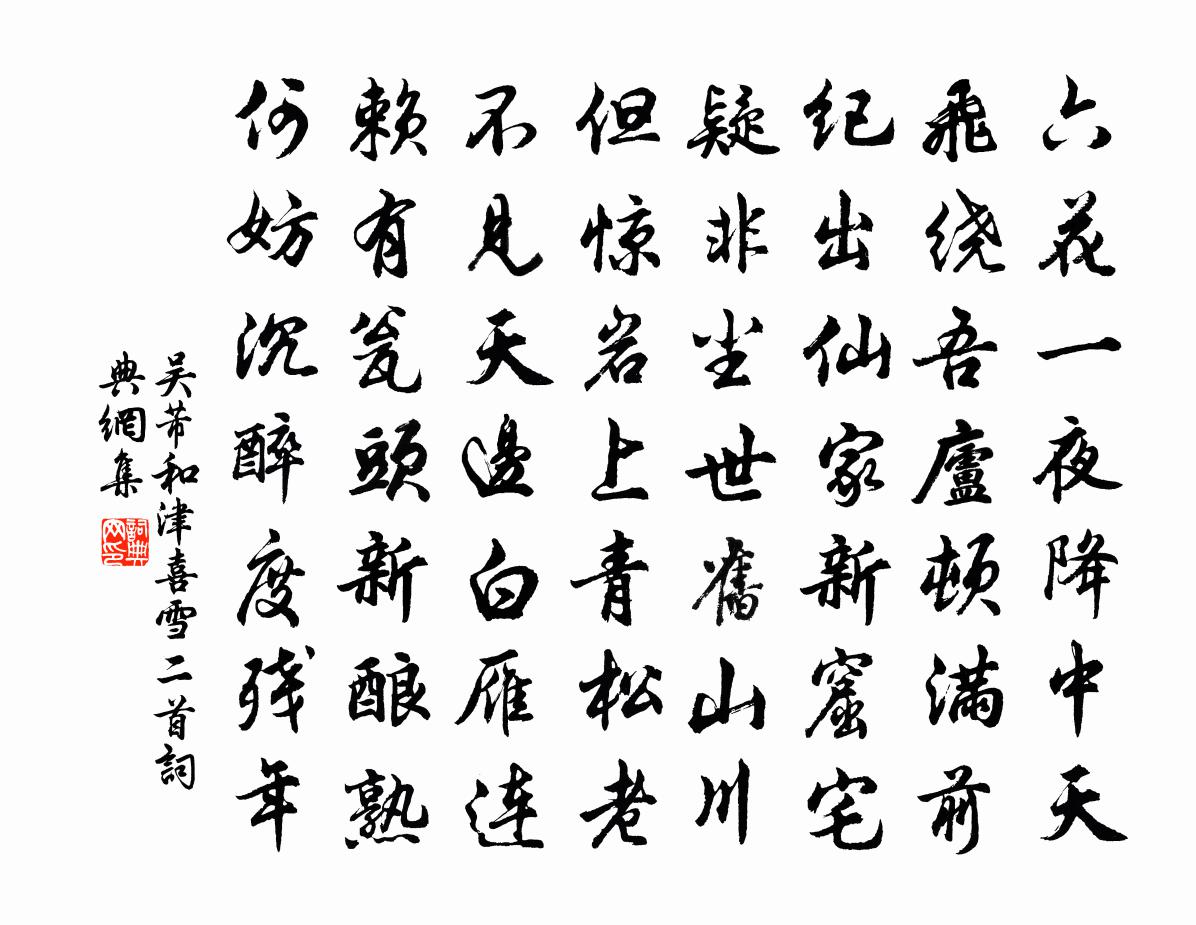 六花一夜降中天
飛绕吾廬頓满前
纪出仙家新窟宅
疑非尘世舊山川
但惊岩上青松老
不見天邊白雁連
赖有瓮頭新酿熟
何妨沉醉度残年
吴芾和津喜雪二首詞
典網集
詞典
网印